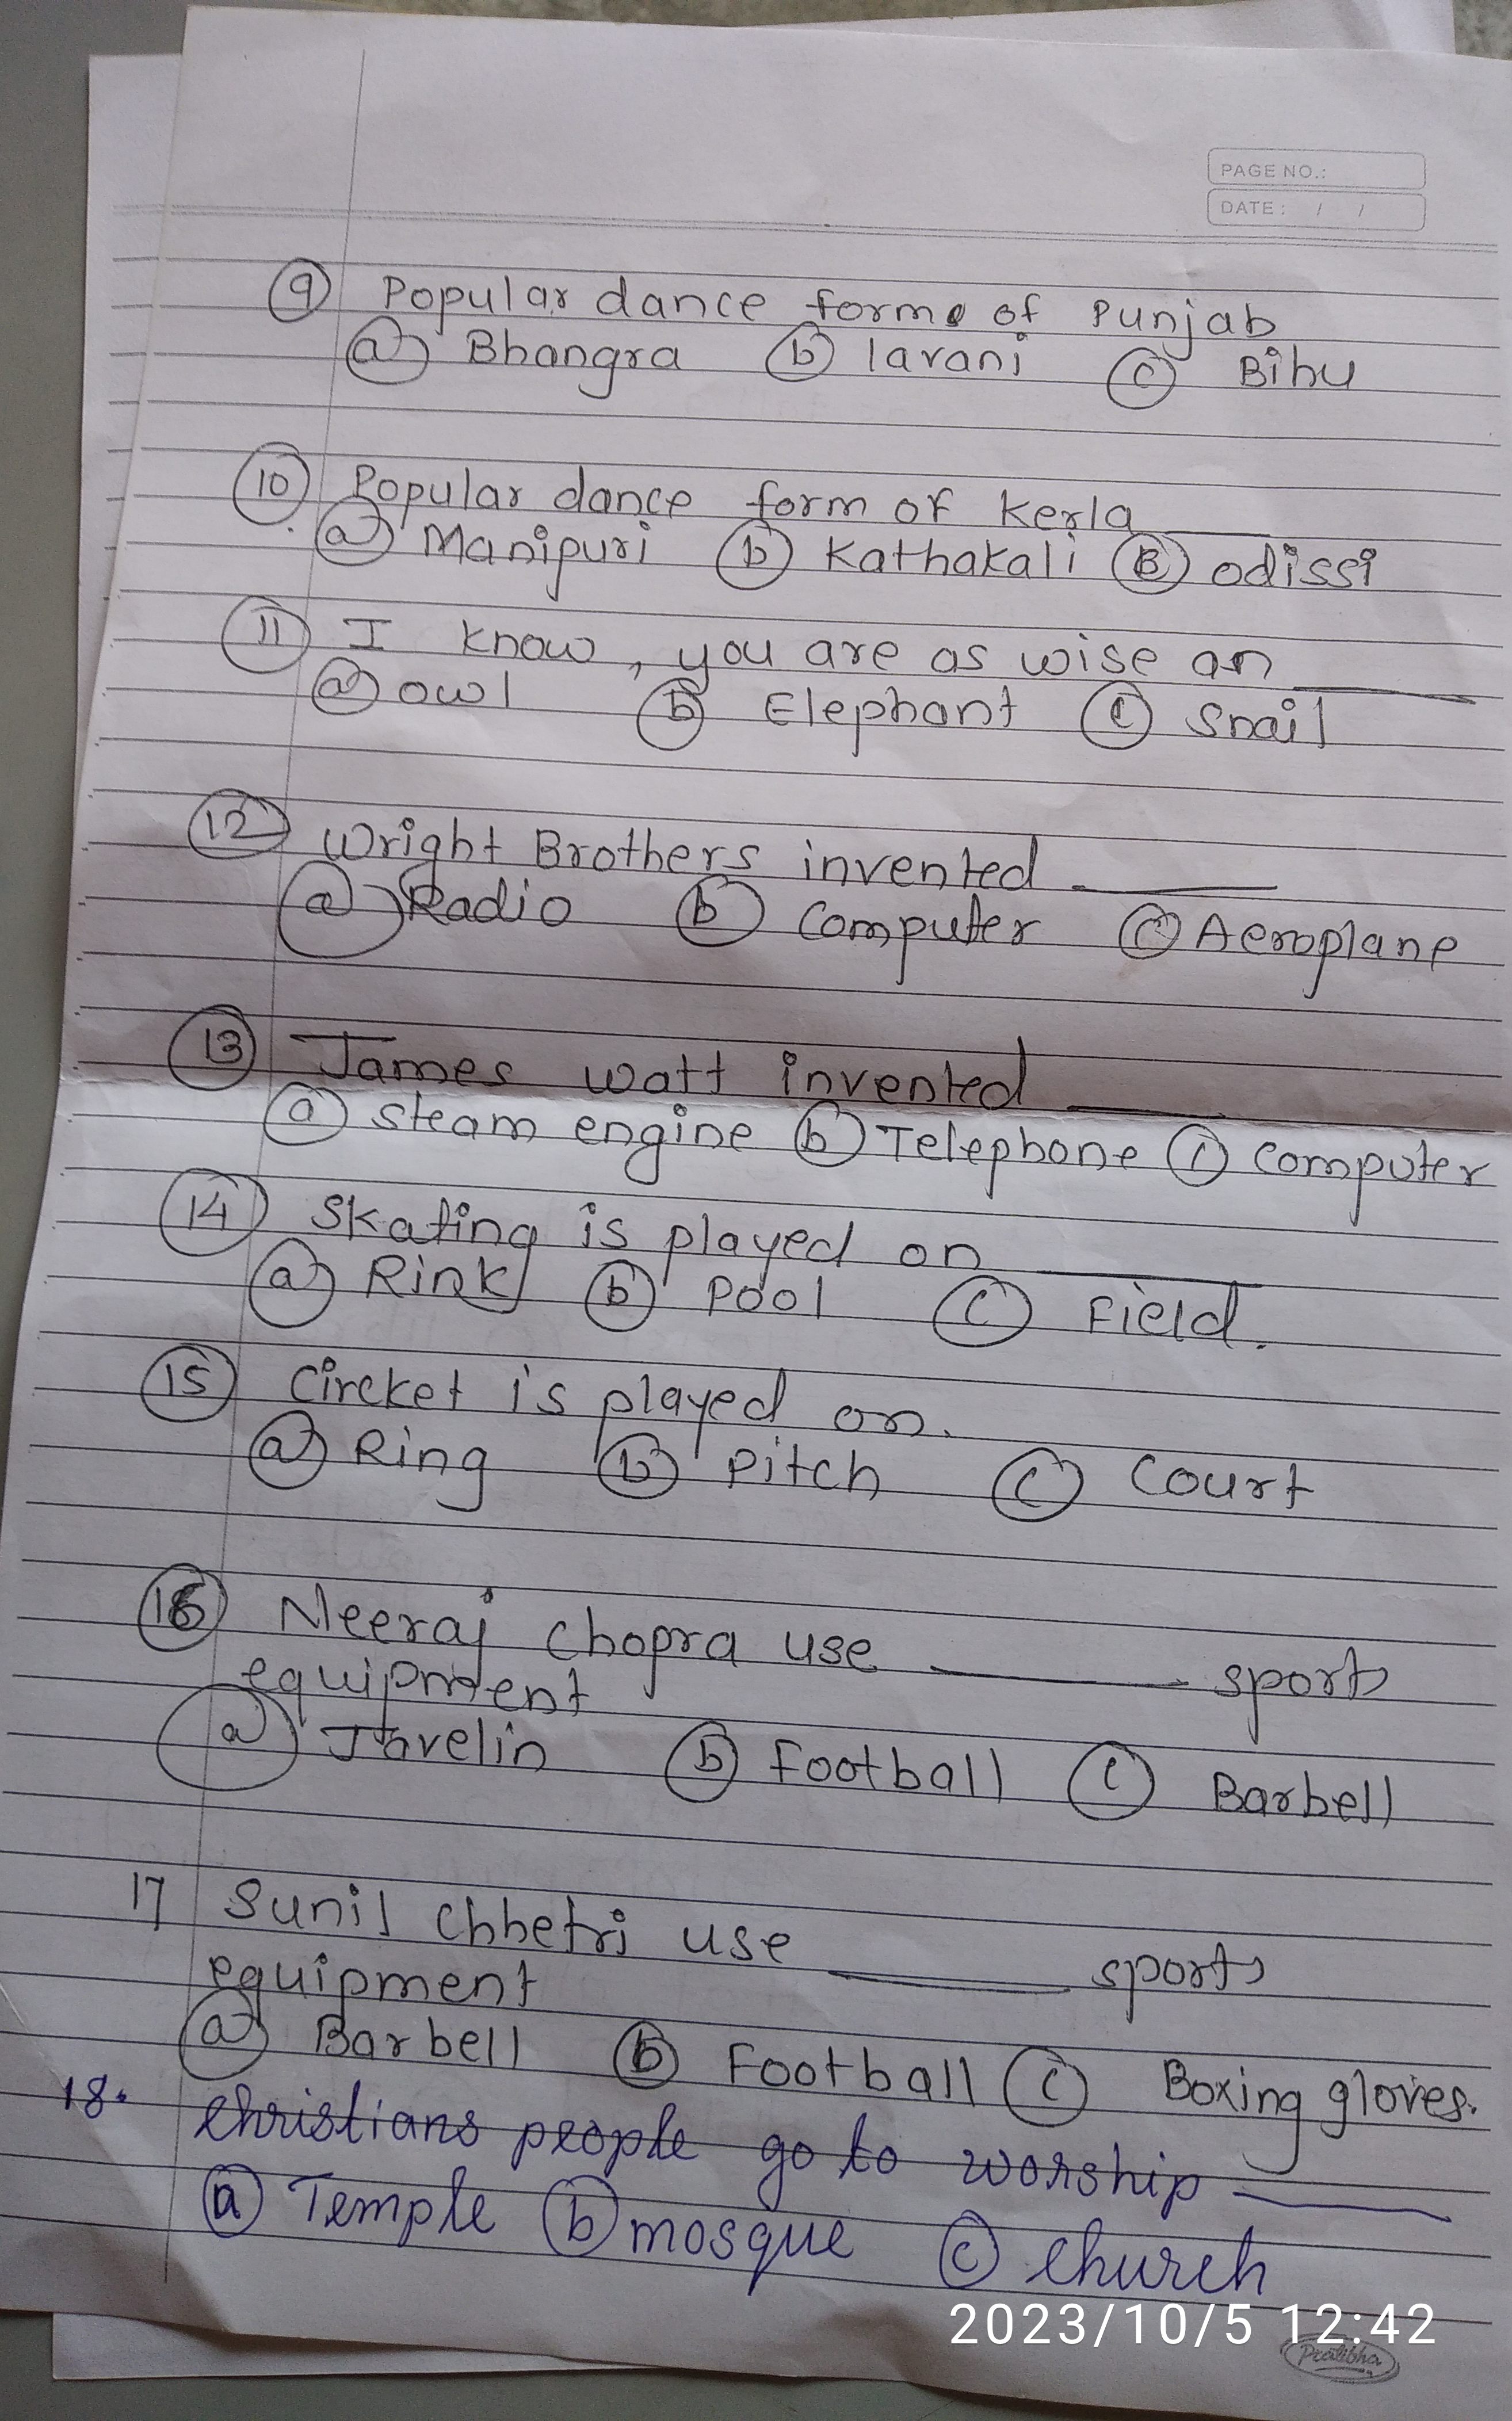 PAGE NO.:
DATE: / /
9 Popular dance forms of Punjab
a Bhangra b lavani c Bihu
10 Popular dance form of kerla ____
a Manipuri b Kathakali B odissi
11 I know, you are as wise an ____
a owl b Elephant c Snail
12 Wright Brothers invented ____
a Radio b Computer c Aeroplane
13 James watt invented ____
a steam engine b Telephone c Computer
14 Skating is played on ____
a Rink b Pool c Field.
15 Circket is played on.
a Ring b Pitch c Court
16 Neeraj chopra use ____ sports
equipment
a Javelin b Football c Barbell
17 Sunil Chhetri use ____ sports
equipment
a Barbell b Football c Boxing gloves.
18. Christians people go to worship ____
a Temple b mosque c church
2023/10/5 12:42
Pratibha